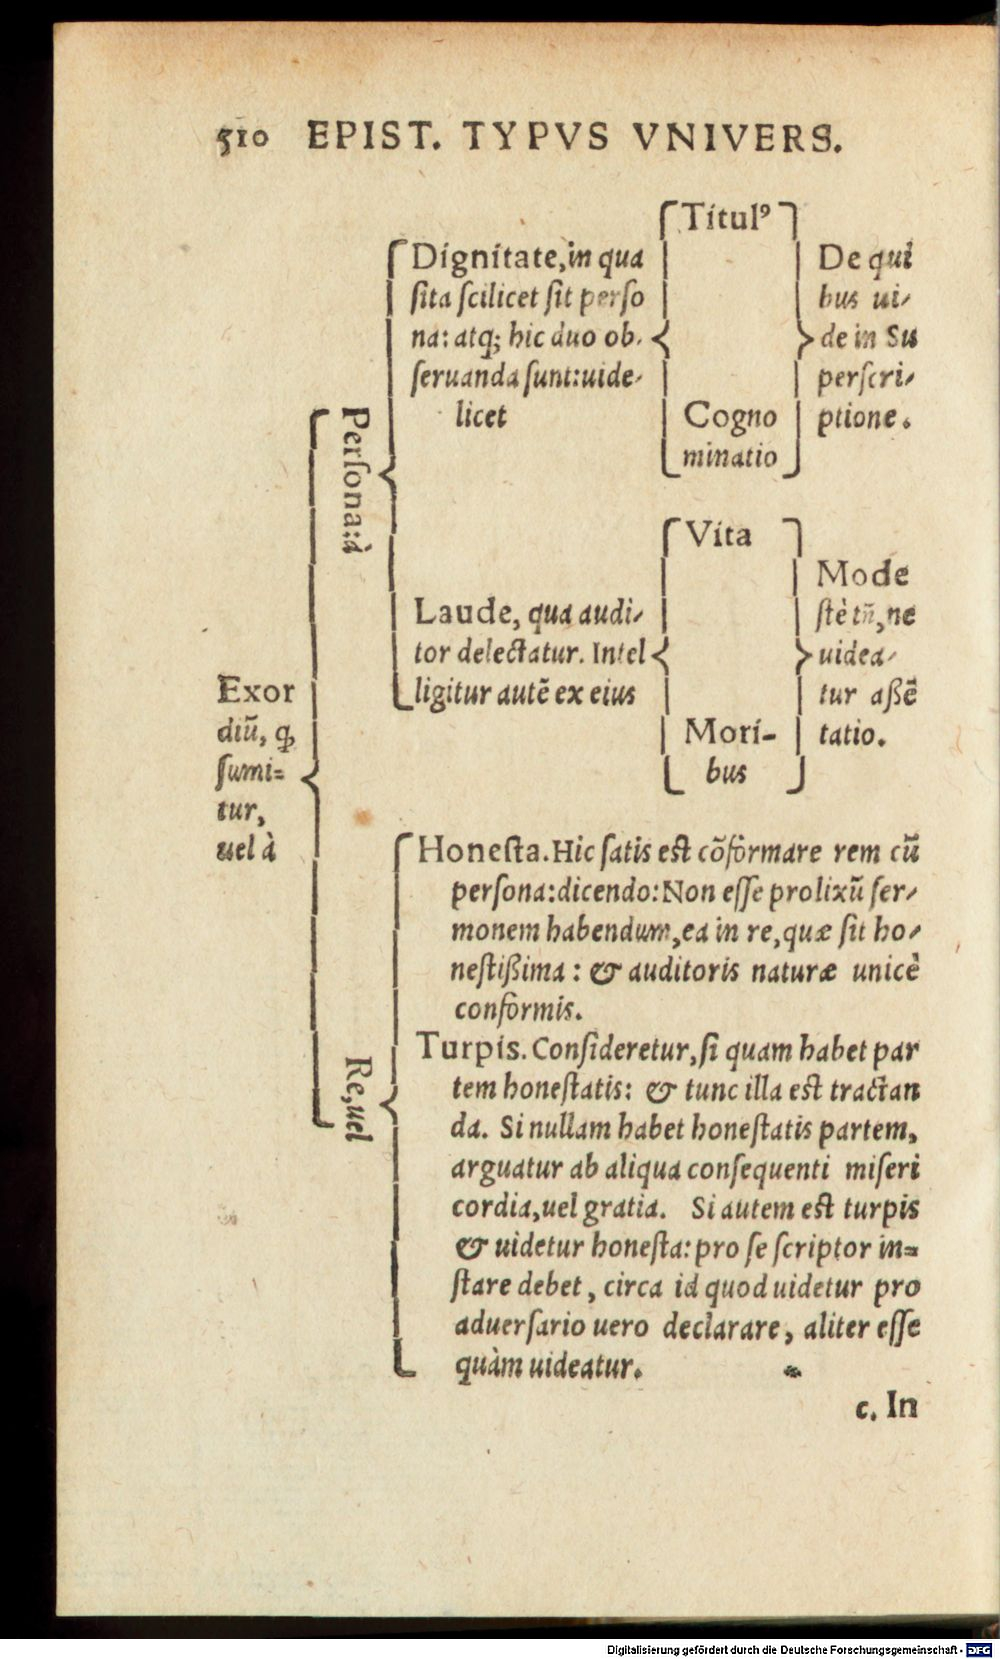 510 EPIST. TYPVS VNIVERS.
Exor
diū, q̧
ſumi=
tur,
uel à
Perſona: à
Dignitate, in qua
ſita ſcilicet ſit perſo
na: atq; hic duo ob-
ſeruanda ſunt: uide-
licet
Titulꝰ
Cogno
minatio
De qui
bus ui-
de in Su
perſcri-
ptione.
Laude, qua audi-
tor delectatur. Intel
ligitur autē ex eius
Vita
Mori-
bus
Mode
ſtè tñ, ne
uidea-
tur aßē
tatio.
Re, uel
Honeſta. Hic ſatis eſt cōformare rem cū
perſona: dicendo: Non eſſe prolixū ſer-
monem habendum, ea in re, quæ ſit ho-
neſtißima: & auditoris naturæ unicè
conformis.
Turpis. Conſideretur, ſi quam habet par
tem honeſtatis: & tunc illa eſt tractan
da. Si nullam habet honeſtatis partem,
arguatur ab aliqua conſequenti miſeri
cordia, uel gratia. Si autem eſt turpis
& uidetur honeſta: pro ſe ſcriptor in=
ſtare debet, circa id quod uidetur pro
aduerſario uero declarare, aliter eſſe
quàm uideatur.
c. In
Digitalisierung gefördert durch die Deutsche Forschungsgemeinschaft - DFG